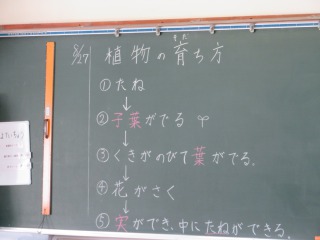 8/27 植物の育ち方
そだ
①たね
↓
②子葉がでる
↓
③くきがのびて葉がでる。
↓
④花がさく
↓
⑤実ができ、中にたねができる。